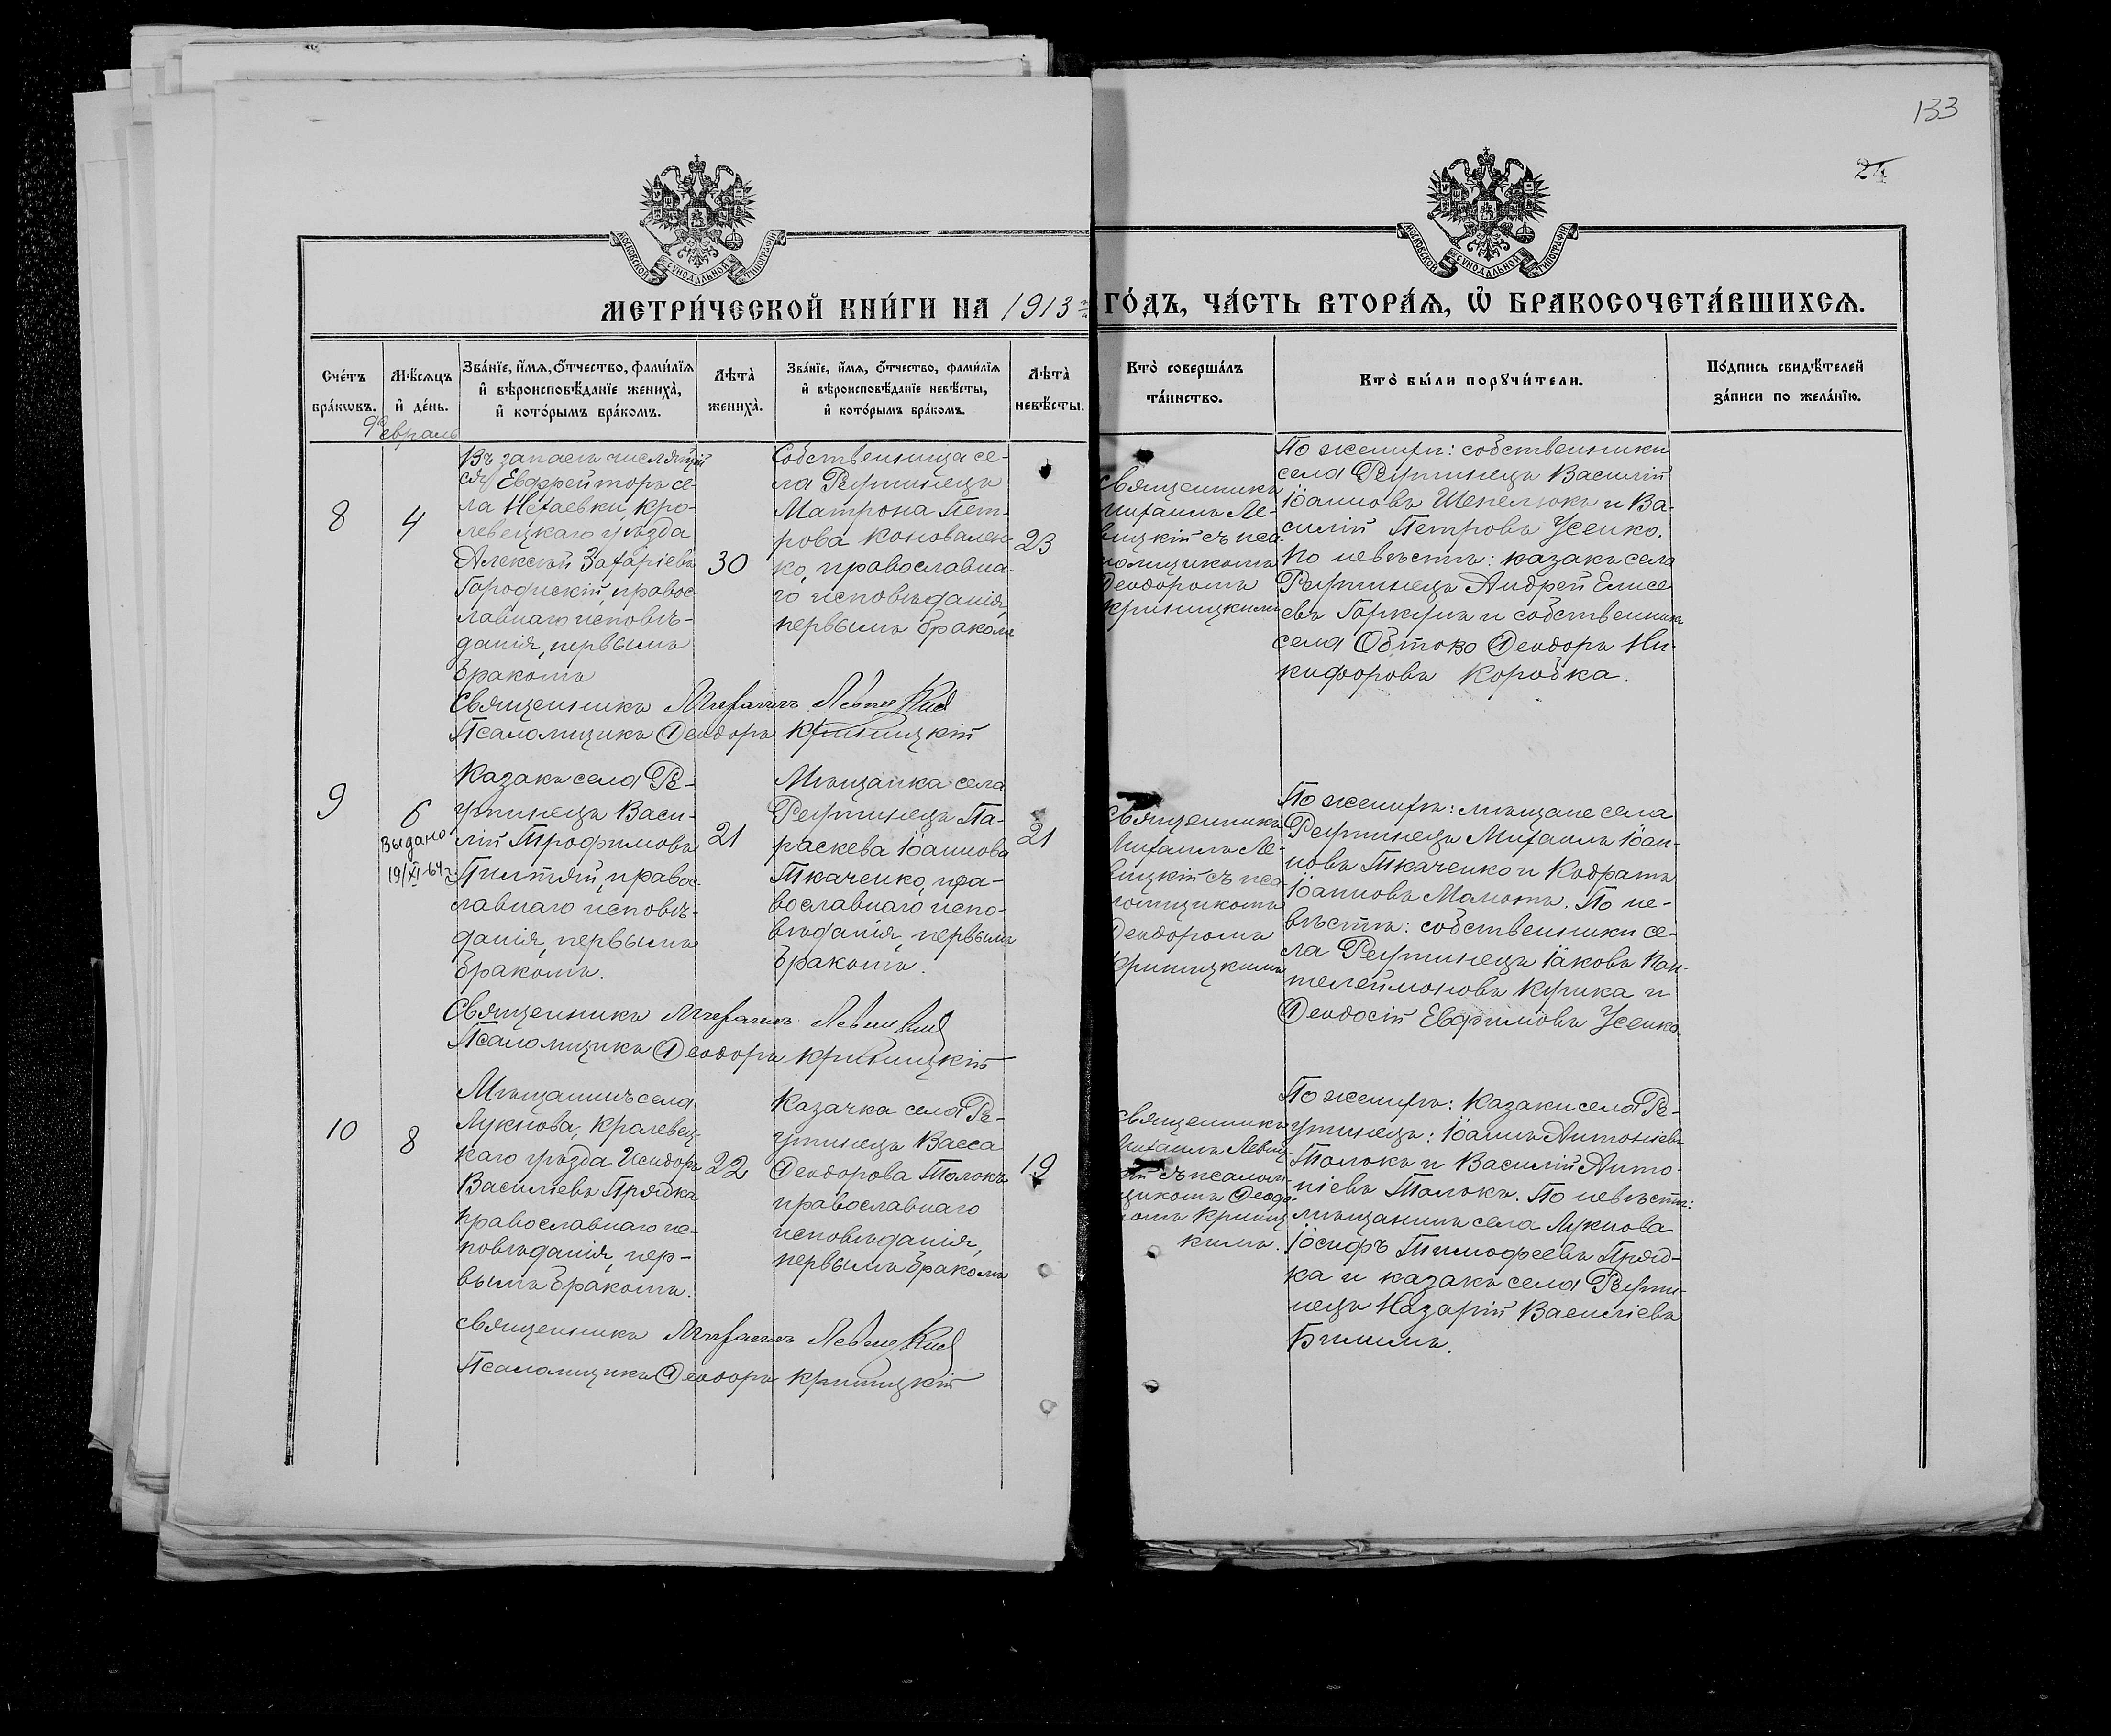 133
24
МОСКОВСКОЙ СѴНОДАЛЬНОЙ ТИПОГРАФІИ
МОСКОВСКОЙ СѴНОДАЛЬНОЙ ТИПОГРАФІИ
МЕТРИ́ЧЕСКОЙ КНИ́ГИ НА 1913 ГО́ДЪ, ЧА́СТЬ ВТОРА́Ѧ, Ѡ҆ БРАКОСОЧЕТА́ВШИХСѦ.
Сче́тъ
бра́кѡвъ.
Мѣ́сѧцъ
и҆ де́нь.
Зва́нїе, и҆́мѧ, ѻ҆́тчество, фами́лїѧ
и҆ вѣроисповѣ́данїе жениха̀,
и҆ кото́рымъ бра́комъ.
Лѣта̀
жениха̀.
Зва́нїе, и҆́мѧ, ѻ҆́тчество, фами́лїѧ
и҆ вѣроисповѣ́данїе невѣ́сты,
и҆ кото́рымъ бра́комъ.
Лѣта̀
невѣ́сты.
Кто̀ соверша́лъ
та́инство.
Кто̀ бы́ли порꙋчи́тели.
По́дпись свидѣ́телей
за́писи по жела́нїю.
Февраль
8
4
Въ запасѣ числящій
ся Ефрейторъ се-
ла Нетаевки, Кро-
левецкаго уѣзда
Алексѣй Захаріевъ
Городискій, правос-
лавнаго исповѣ-
данія, первымъ
бракомъ
30
Собственница се-
ла Реутинецъ
Матрона Пет-
рова Коновален-
ко, православна-
го исповѣданія,
первымъ бракомъ
23
Священникъ
Михаилъ Ле-
вицкій съ пса-
ломщикомъ
Ѳеодоромъ
Криницкимъ
По женихѣ: собственники
села Реутинецъ Василій
Іоанновъ Шепелюкъ и Ва-
силій Петровъ Усенко.
По невѣстѣ: казакъ села
Реутинецъ Андрей Елисе
евъ Гаркуша и собственникъ
села Обтово Ѳеодоръ Ни-
кифоровъ Коробка.
Священникъ Михаилъ Левицкій
Псаломщикъ Ѳеодоръ Криницкій
9
6
Выдано
19/XI-64 г.
Казакъ села Ре-
утинецъ Васи-
лій Трофимовъ
православ-
лавнаго исповѣ-
данія, первымъ
бракомъ.
21
Мѣщанка села
Реутинецъ Па-
раскева Іоаннова
Ткаченко, пра-
вославнаго испо-
вѣданія, первымъ
бракомъ.
21
Священникъ
Михаилъ Ле-
вицкій съ пса-
ломщикомъ
Ѳеодоромъ
Криницкимъ
По женихѣ: мѣщане села
Реутинецъ Михаилъ Іоан-
новъ Ткаченко и Кодратъ
Іоанновъ. По не-
вѣстѣ: собственники се-
ла Реутинецъ Іаковъ Пан-
телеймоновъ Кушка и
Ѳеодосій Евфимовъ Усенко.
Священникъ Михаилъ Левицкій
Псаломщикъ Ѳеодоръ Криницкій
10
8
Мѣщанинъ села
Лукнова, Кролевец-
каго уѣзда Исидоръ
Василіевъ Прядка
православнаго ис-
повѣданія, пер-
вымъ бракомъ.
22
Казачка села Ре-
утинецъ Васса
Ѳеодорова Толокъ
православнаго
исповѣданія,
первымъ бракомъ
19
Священникъ
Михаилъ Левиц-
кій съ псалом-
щикомъ Ѳеодо-
ромъ Криниц
кимъ.
По женихѣ: казаки села Ре-
утинецъ: Іоаннъ Антоніевъ
Толока и Василій Анто-
ніевъ Толока. По невѣстѣ:
мѣщанинъ села Лукнова
Іосифъ Тимофеевъ Пряд-
ка и казакъ села Реути-
нецъ Назарій Василіевъ
Билимъ.
Священникъ Михаилъ Левицкій
Псаломщикъ Ѳеодоръ Криницкій